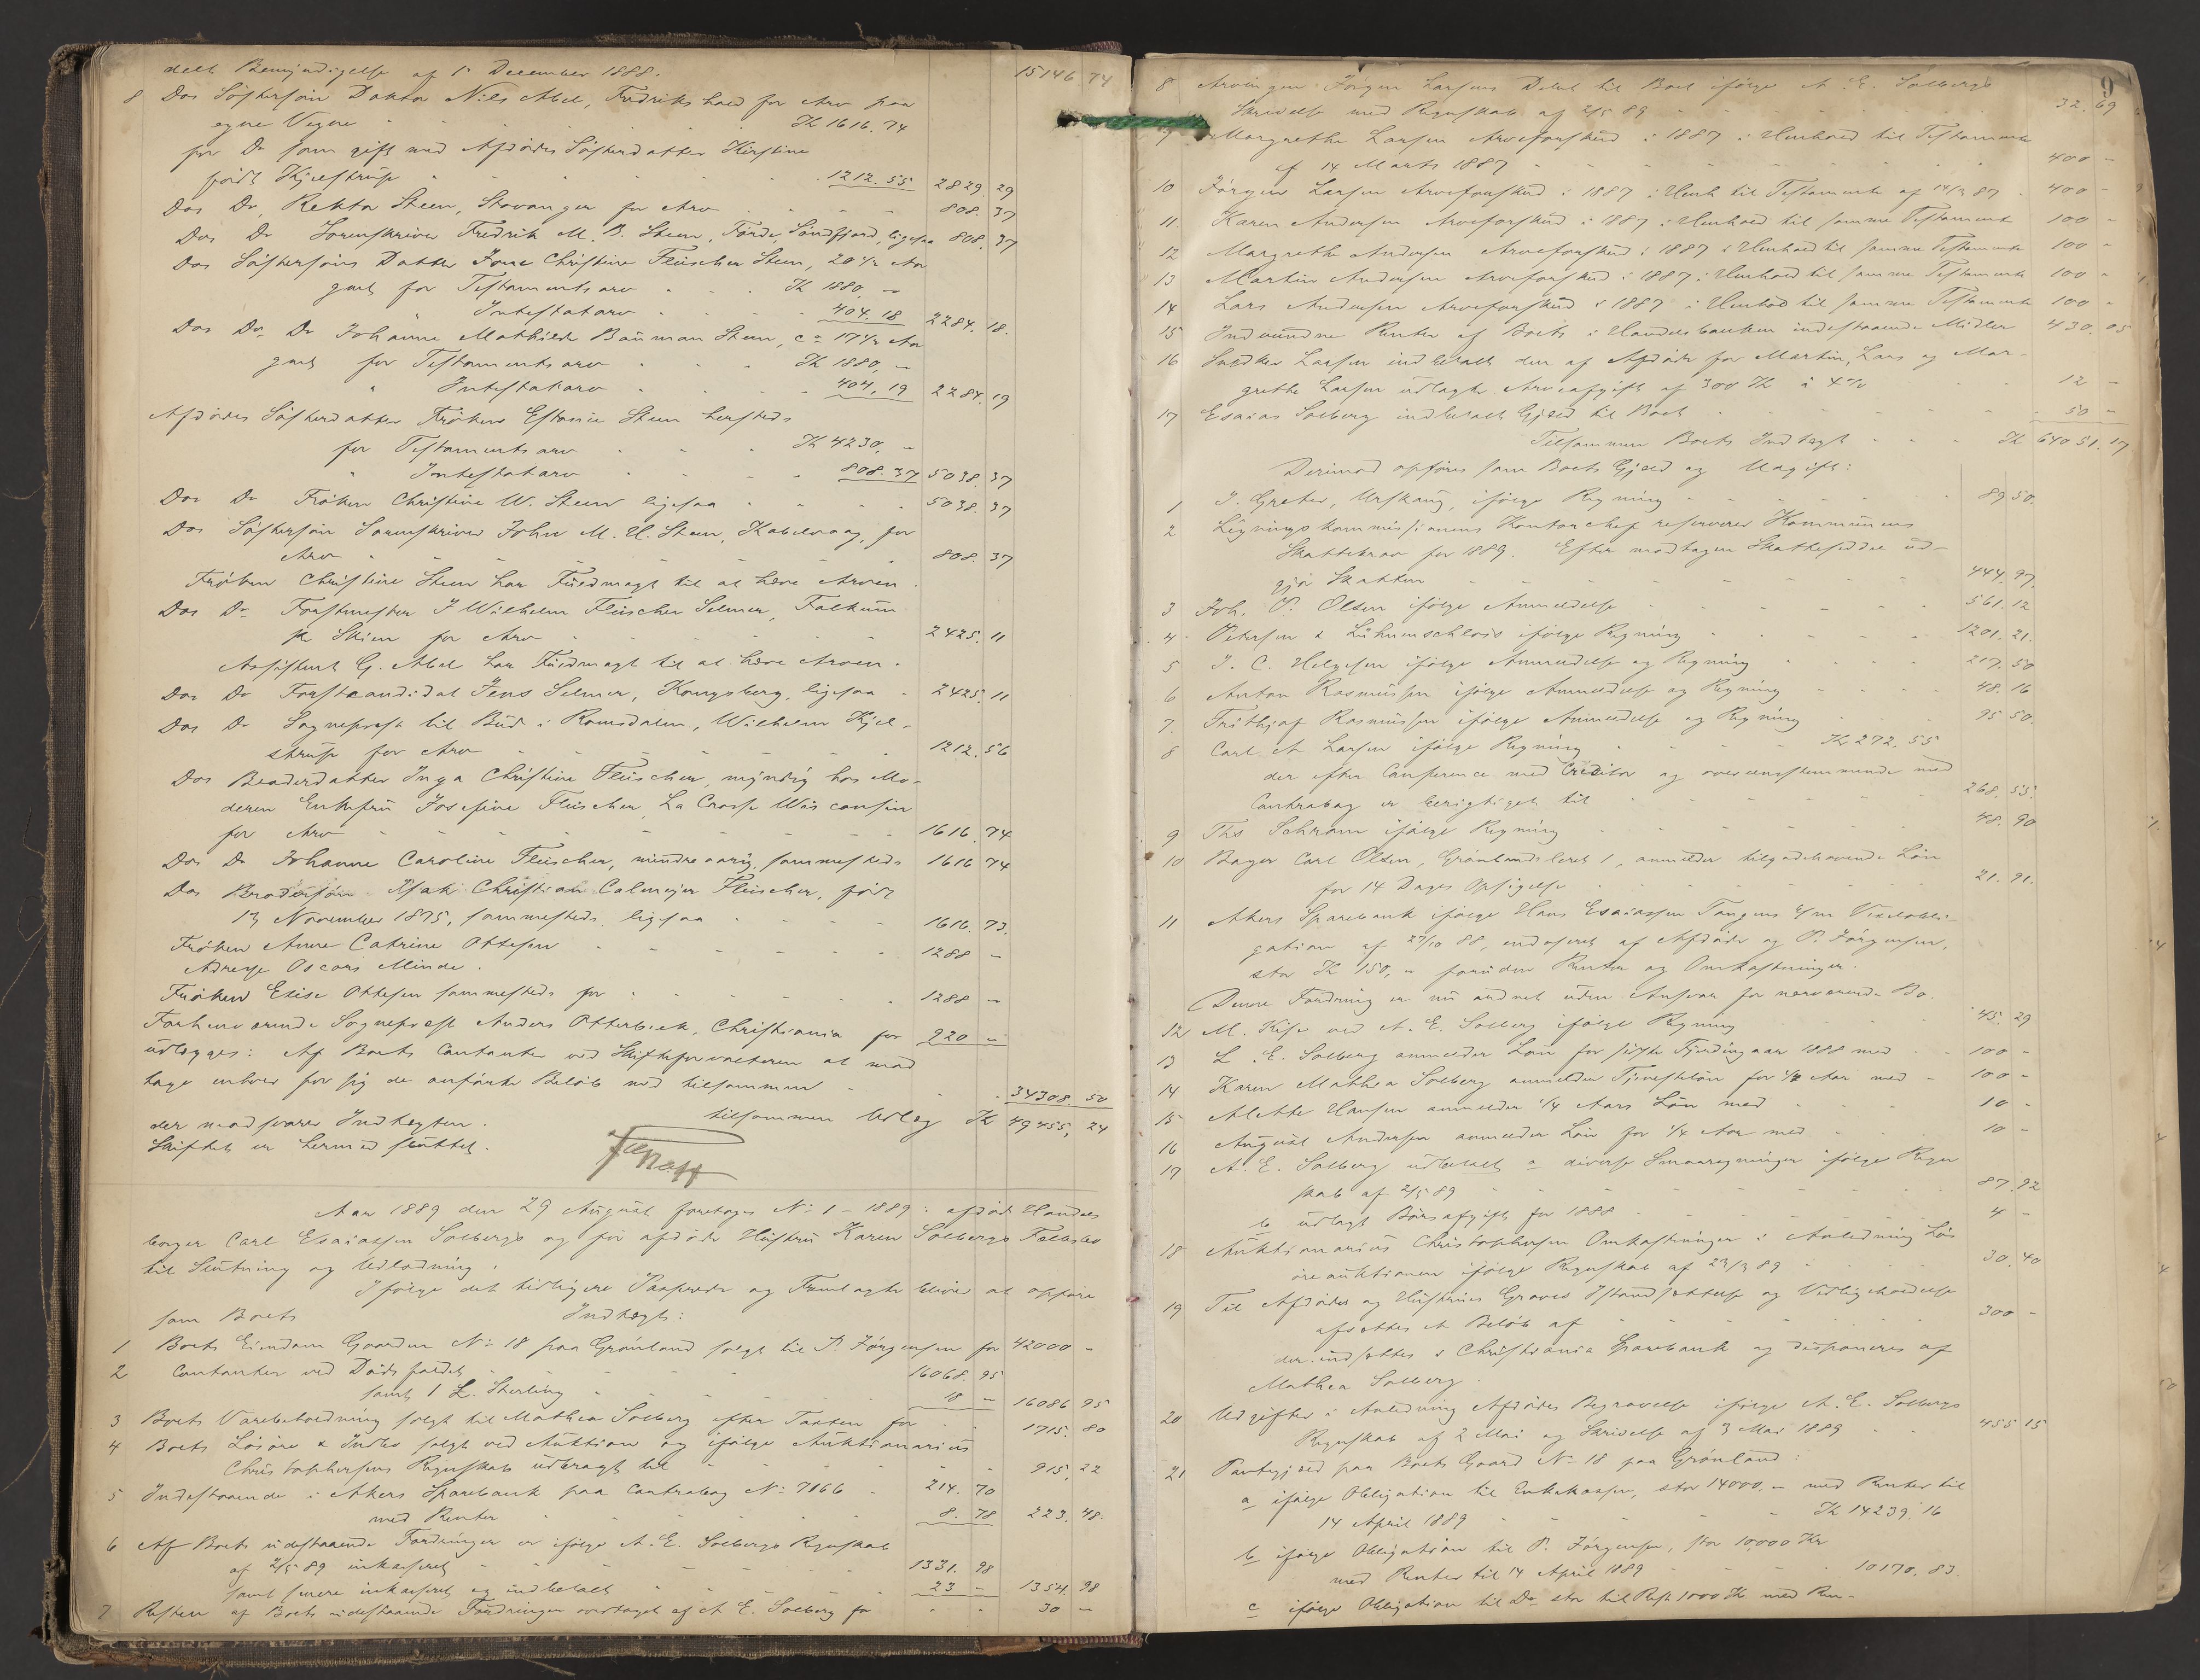 dels Bemyndigelse af 1 December 1888. 15146 74
8 Dos Söstersön Doktor Niels Abel, Fredrikshald for Arv paa
egne Vegne Kr 1616. 74
for Do som gift med Afdödes Sösterdatter Kirstine
född Kjelstrup 1212. 55 2829. 29
Dos Do, Rektor Steen, Stavanger for Arv 808. 37
Dos Do Sorenskriver Fredrik M. B. Steen, Förde, Söndfjord, ligesaa 808. 37
Dos Söstersöns Datter Christine Fleischer Steen, 20 1/2 Aar
gml for Testamentsarv Kr 1880, -
Intestatarv 404. 18 2284. 18.
Dos Do, Do Johanne Mathilde Steen, ca 17 1/2 Aar
gml for Testamentsarv Kr 1880, -
" Intestatarv 404, 19 2284. 19
Afdödes Sösterdatter Fröken Steen hersteds
for Testamentsarv Kr 4230, -
" Intestatarv 808. 37 5038. 37
Dos Do Fröken Christine W. Steen ligesaa 5038. 37
Dos Söstersön Sorenskriver John M. U. Steen, Kabelvaag, for
Arv 808. 37
Fröken Christine Steen har Fuldmagt til at hæve Arven.
Dos Do Forstmester J Wilhelm Fleischer Selmer, Falkum
pr Skien for Arv 2425. 11
Assistent G. Abel har Fuldmagt til at hæve Arven.
Dos Do Forstcandidat Jens Selmer, Kongsberg, ligesaa 2425. 11
Dos Do Sogneprest til Bud i Romsdalen, Wilhelm Kjel-
strup for Arv 1212. 56
Dos Broderdatter Inga Christine Fleischer, myndig hos Mo-
deren Enkefru Josefine Fleischer, La Crosse Wisconsin
for Arv 1616. 74
Dos Do Johanne Caroline Fleischer, mindreaarig, sammesteds 1616 74
Dos Brodersön Isak Christian Calmeyer Fleischer, född
13 November 1875, sammesteds, ligesaa 1616. 73.
Fröken Anne Catrine Ottesen 1288 -
Adresse Oscars Minde.
Fröken Elise Ottesen sammesteds for 1288 -
Forhenværende Sogneprest Anders Otterbeck, Christiania for 920 -
udlægges: Af Boets Contanter ved Skifteforvalteren at mod
tage enhver for sig de anförte Belöb med tilsammen 34308. 50
tilsammen Udlæg Kr 49455, 24
der modsvarer Indtægten.
Skiftet er hermed sluttet.
Aar 1889 den 29 August foretoges No 1 - 1889: afdöde Handels
borger Carl Esaiassen Solbergs og för afdöde Hustru Karen Solbergs Fællesbo
til Slutning og Udlodning.
Ifölge det tidligere Passerede og Fremlagte bliver at opföre
som Boets Indtægt:
1 Boets Eiendom Gaarden No 18 paa Grönland solgt til P. Jörgensen for 42000 -
2 Contanter ved Dödsfaldet 16068. 95
samt 1 £. Sterling 18 - 16086 95
3 Boets Varebeholdning solgt til Mathea Solberg efter Taxten for 1715. 80
4 Boets Lösöre & Indbo solgt ved Auktion og ifölge Auktionarius
Christophersens Regnskab udbragt til 915, 22
5 Indestaaende i Akers Sparebank paa Contrabog No 7166 214. 70
med Renter 8. 78 223. 48.
6 Af Boets udestaaende Fordringer er ifölge A. E. Solbergs Regnskab
af 2/5 89 inkasseret 1331. 98
samt senere inkasseret og indbetalt 23 - 1354. 98
7 Resten af Boets udestaaende Fordringer overtaget af A E. Solberg for 30 -
9
8 Arvingen Jörgen Larsens Debet til Boet ifölge A. E. Solbergs
Skrivelse med Regnskab af 2/5 89 32. 69
9 Margrethe Larsen Arveforskud i 1887 i Henhold til Testamente
af 14 Marts 1887 400 -
10 Jörgen Larsen Arveforskud i 1887 i Henh til Testamente af 14/3 87 400 -
11 Karen Andersen Arveforskud i 1887 i Henhold til samme Testamente 100 -
12 Margrethe Andersen Arveforskud i 1887 i Henhold til samme Testamente 100 -
13 Martin Andersen Arveforskud i 1887 i Henhold til samme Testamente 100 -
14 Lars Andersen Arveforskud i 1887 i Henhold til samme Testamente 100 -
15 Indvundne Renter af Boets i Handelsbanken indestaaende Midler 430. 05
16 Snedker Larsen indbetalt den af Afdöde for Martin, Lars og Mar-
grethe Larsen udlagte Arveafgift af 300 Kr à 4% 12 -
17 Esaias Solberg indbetalt Gjæld til Boet 50 -
Tilsammen Boets Indtægt Kr 64051. 17
Derimod opföres som Boets Gjæld og Udgift:
1 J. Græter, Urskoug, ifölge Regning 89 50.
2 Ligningskommissionens Kontorchef reserverer Kommunens
Skattekrav for 1889. Efter modtagen Skatteseddel ud-
gjör Skatten 444. 97.
3 Joh. P. Olsen ifölge Anmeldelse 561. 12
4 Petersen & Lühmenschloss ifölge Regning 1201. 21.
5 J. C. Helgesen ifölge Anmeldelse og Regning 217. 50
6 Anton Rasmussen ifölge Anmeldelse og Regning 48. 16
7. Frithjof Rasmussen ifölge Anmeldelse og Regning 95 50.
8 Carl A Larsen ifölge Regning Kr 272. 55
der efter Conference med Creditor og overensstemmende med
Contrabog er berigtiget til 268. 55.
9 Ths Schram ifölge Regning 48. 90
10 Bager Carl Olsen, Grönlandsleret 1, anmelder tilgodehavende Lön
for 14 Dages Opsigelse 21. 91.
11 Akers Sparebank ifölge Hans Esaiassen Tangens 6/m Vexelobli-
gation af 27/10 88, endosseret af Afdöde og P. Jörgensen,
stor Kr 150, - foruden Renter og Omkostninger.
Denne Fordring er nu ordnet uden Ansvar for nærværende Bo.
12 M. Kise ved A. E. Solberg ifölge Regning 45. 29
13 L. E. Solberg anmelder Lön for sidste Fjerdingaar 1888 med 100 -
14 Karen Mathea Solberg anmelder Tjenestelön for 1/2 Aar med 100 -
15 Alette Hansen anmelder 1/4 Aars Lön med 10 -
16 August Andersen anmelder Lön for 1/4 Aar med 10 -
17 A. E. Solberg udbetalt a diverse Smaaregninger ifölge Regn
skab af 2/5 89 87. 92
b udlagt Börsafgift for 1888 4 -
18 Auktionarius Christophersen Omkostninger i Anledning Lös
öreauktionen ifölge Regnskab af 23/3 89 30. 40
19 Til Afdödes og Hustrues Graves Istandsættelse og Vedligeholdelse
afsættes et Belöb af 300 -
der indsættes i Christiania Sparebank og disponeres af
Mathea Solberg.
20 Udgifter i Anledning Afdödes Begravelse ifölge A. E. Solbergs
Regnskab af 2 Mai og Skrivelse af 3 Mai 1889 455 15
21 Pantegjæld paa Boets Gaard No 18 paa Grönland:
a ifölge Obligation til Enkekassen, stor 14000, - med Renter til
14 April 1889 Kr 14239. 16
b ifölge Obligation til P. Jörgensen, stor 10,000 Kr
med Renter til 14 April 1889 10170. 83.
c ifölge Obligation til Do stor til Rest 1000 Kr med Ren-